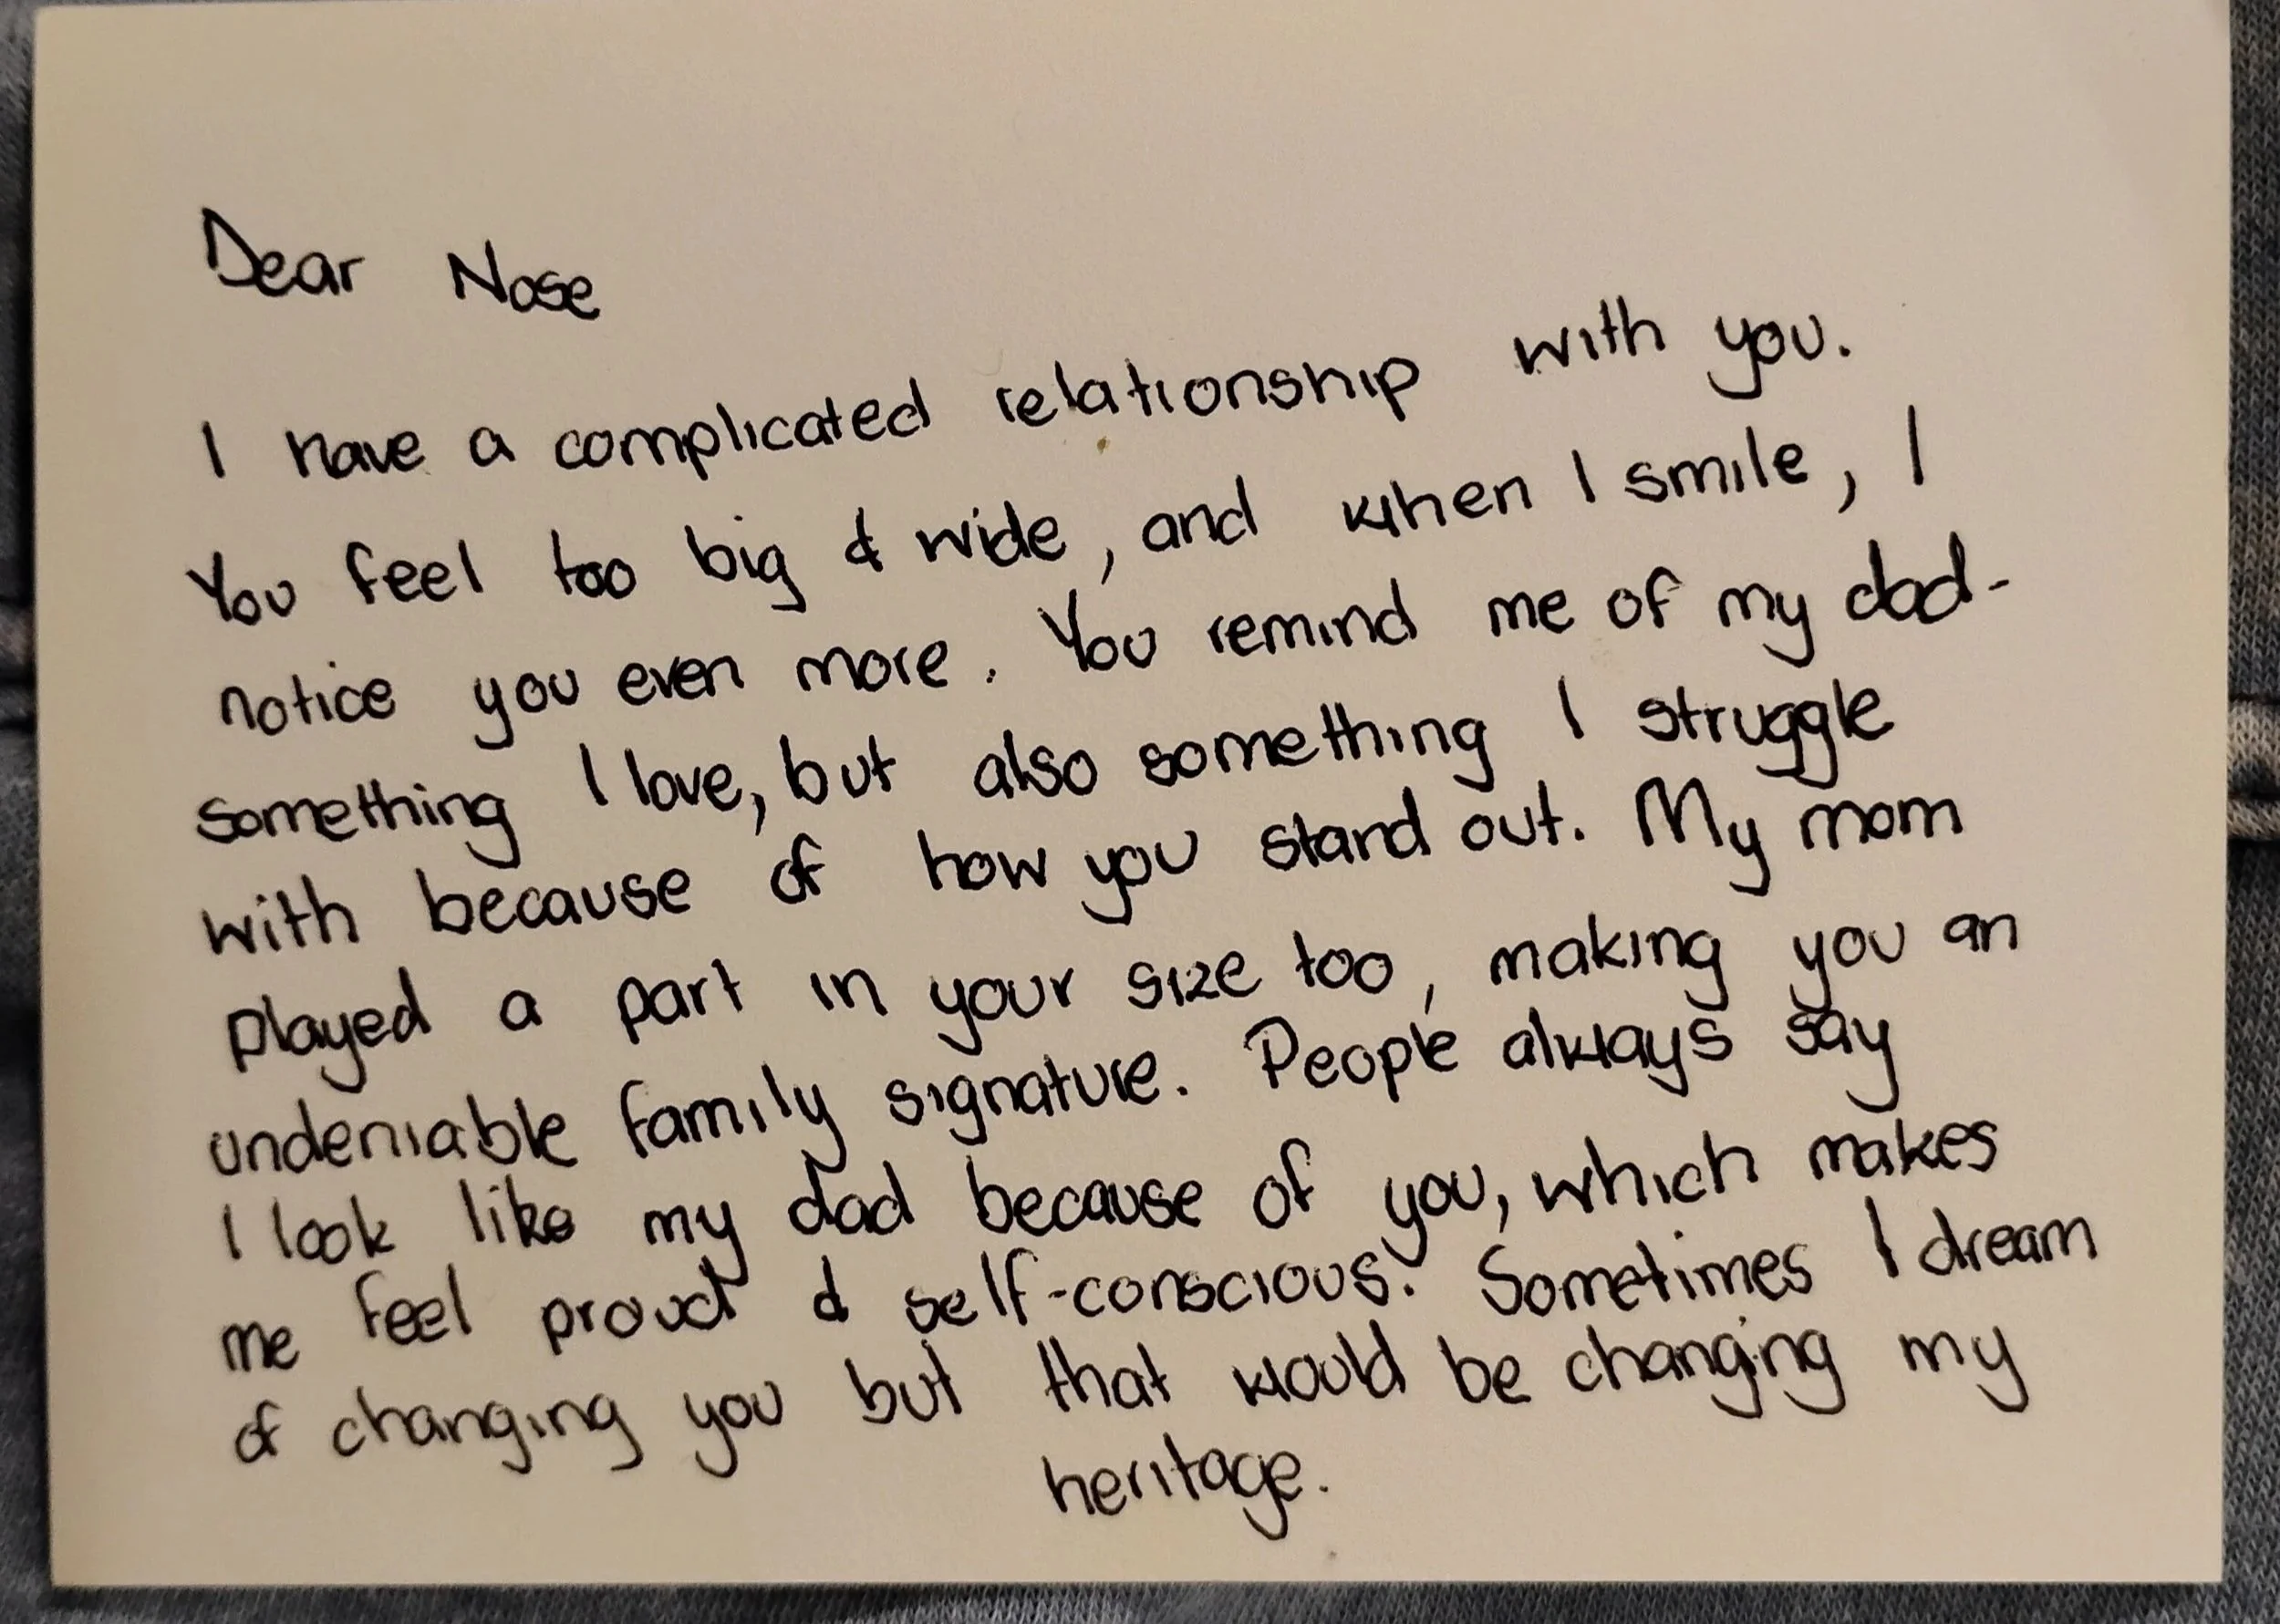 Dear Nose
I have a complicated relationship with you.
You feel too big & wide, and when I smile, I
notice you even more. You remind me of my dad-
something I love, but also something I struggle
with because of how you stand out. My mom
played a part in your size too, making you an
undeniable family signature. People always say
I look like my dad because of you, which makes
me feel proud & self-conscious. Sometimes I dream
of changing you but that would be changing my
heritage.